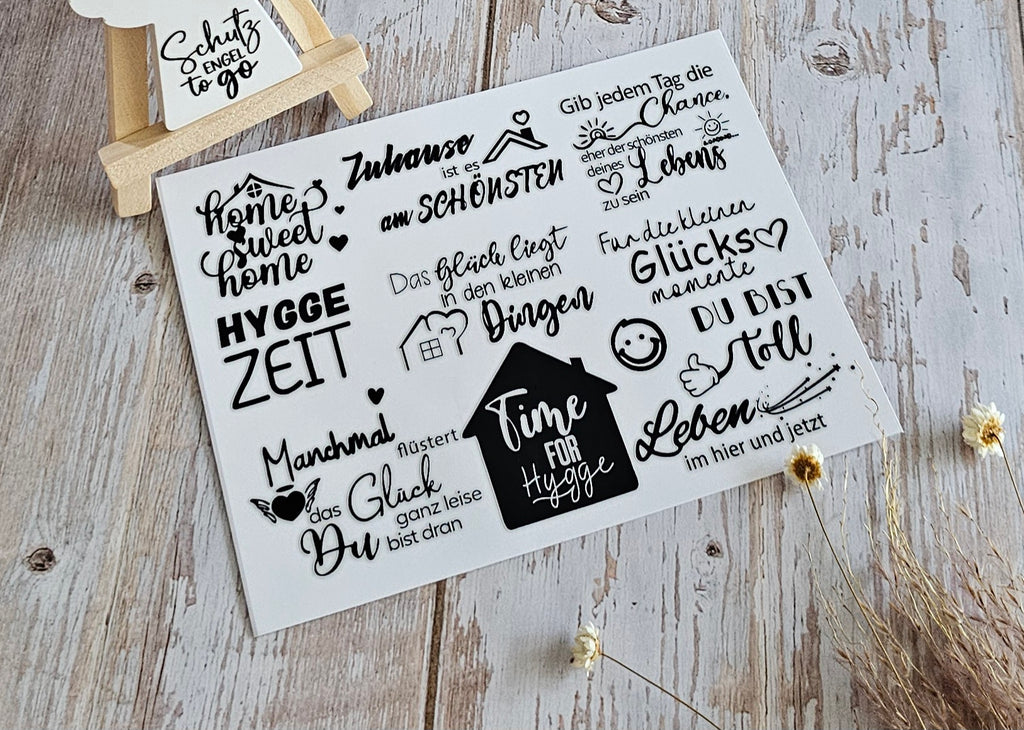 Schutz
ENGEL
to go
home
sweet
home
Zuhause
ist es
am SCHÖNSTEN
Gib jedem Tag die
Chance,
eher der schönsten
deines Lebens
zu sein
HYGGE
ZEIT
Das Glück liegt
in den kleinen
Dingen
Für die kleinen
Glücks
momente
DU BIST
toll
Manchmal flüstert
das Glück ganz leise
Du bist dran
Time
FOR
Hygge
Leben
im hier und jetzt